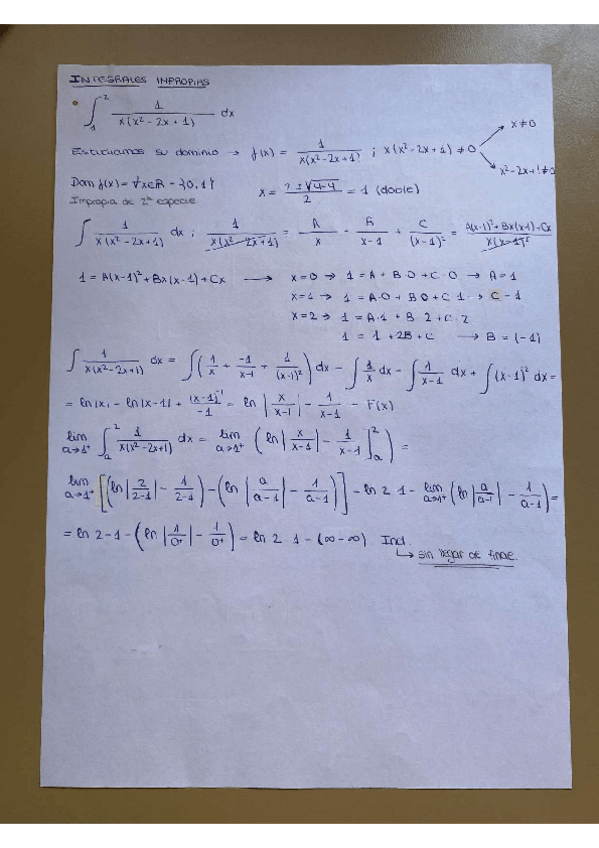 INTEGRALES INPROPIAS
• ∫₁² 1/(x(x² - 2x + 1)) dx
Estudiamos su dominio → f(x) = 1/(x(x² - 2x + 1)) ; x(x² - 2x + 1) ≠ 0 → x ≠ 0
→ x² - 2x + 1 ≠ 0
Dom f(x) = ∀x∈R - {0,1} x = (2 ± √(4-4))/2 = 1 (doble)
Impropia de 2ª especie
∫ 1/(x(x² - 2x + 1)) dx ; 1/(x(x² - 2x + 1)) = A/x - B/(x-1) + C/(x-1)² = (A(x-1)² + Bx(x-1) + Cx)/(x(x-1)²)
1 = A(x-1)² + Bx(x-1) + Cx → x=0 → 1 = A + B·0 + C·0 → A = 1
x=1 → 1 = A·0 + B·0 + C·1 → C - 1
x=2 → 1 = A·1 + B·2 + C·2
1 = 1 + 2B + C → B = (-1)
∫ 1/(x(x²-2x+1)) dx = ∫(1/x + -1/(x-1) + 1/(x-1)²) dx - ∫ 1/x dx - ∫ 1/(x-1) dx + ∫(x-1)² dx =
= ln|x| - ln|x-1| + (x-1)⁻¹/-1 = ln|x/(x-1)| - 1/(x-1) - F(x)
lim a→1⁺ ∫ₐ² 1/(x(x²-2x+1)) dx = lim a→1⁺ (ln|x/(x-1)| - 1/(x-1)]ₐ²) =
lim a→1⁺ [(ln|2/(2-1)| - 1/(2-1)) - (ln|a/(a-1)| - 1/(a-1))] - ln 2 1 - lim a→1⁺ (ln|a/(a-1)| - 1/(a-1)) =
= ln 2 - 1 - (ln|1/0⁺| - 1/0⁺) = ln 2 1 - (∞ - ∞) Ind.
↳ sin llegar al final